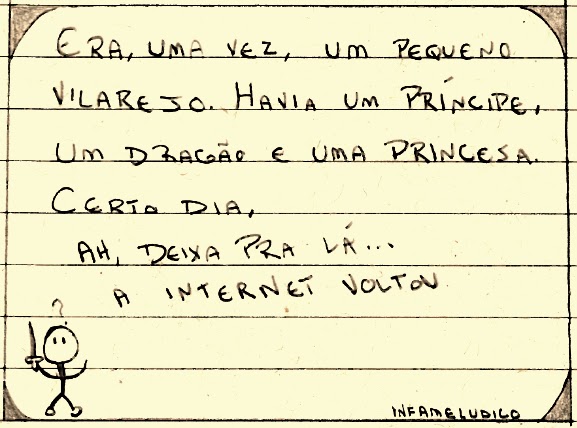 ERA, UMA VEZ, UM PEQUENO
VILAREJO. HAVIA UM PRÍNCIPE,
UM DRAGÃO E UMA PRINCESA.
CERTO DIA,
AH, DEIXA PRA LÁ...
A INTERNET VOLTOU
?
INFAMELUDICO